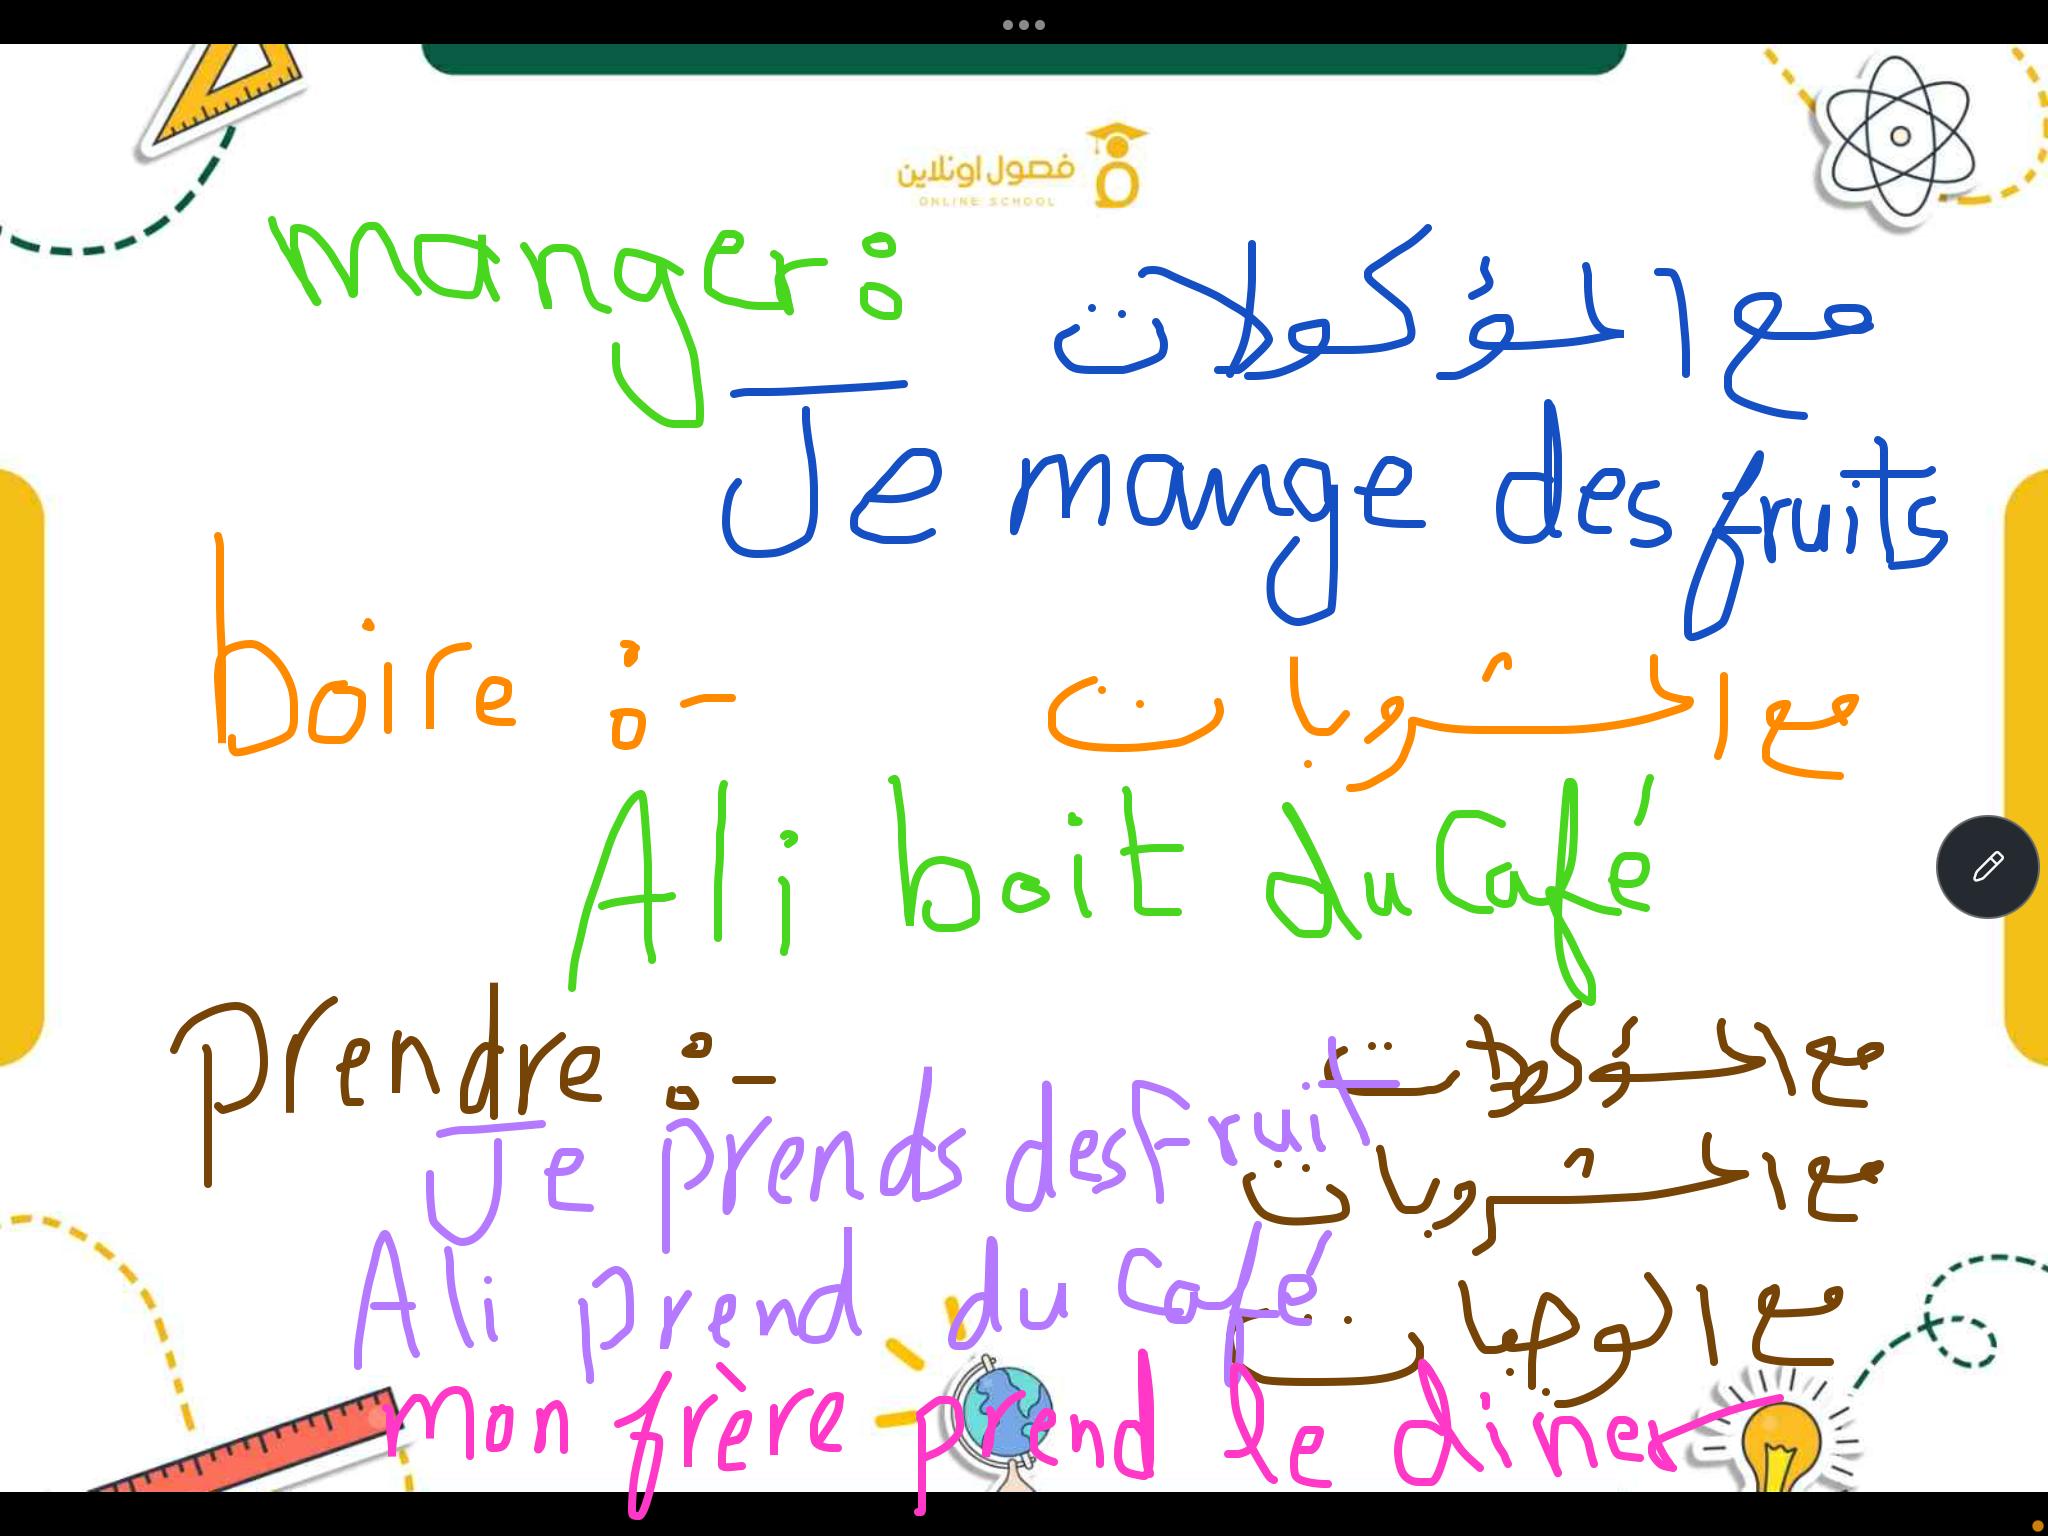 فصول اونلاين
ONLINE SCHOOL
manger: مع المؤكولات
Je mange des fruits
boire :- مع المشروبات
Ali boit du Café
prendre :- مع المؤكولات
Je prends des Fruit مع المشروبات
Ali prend du Café مع الوجبات
mon frère prend le diner